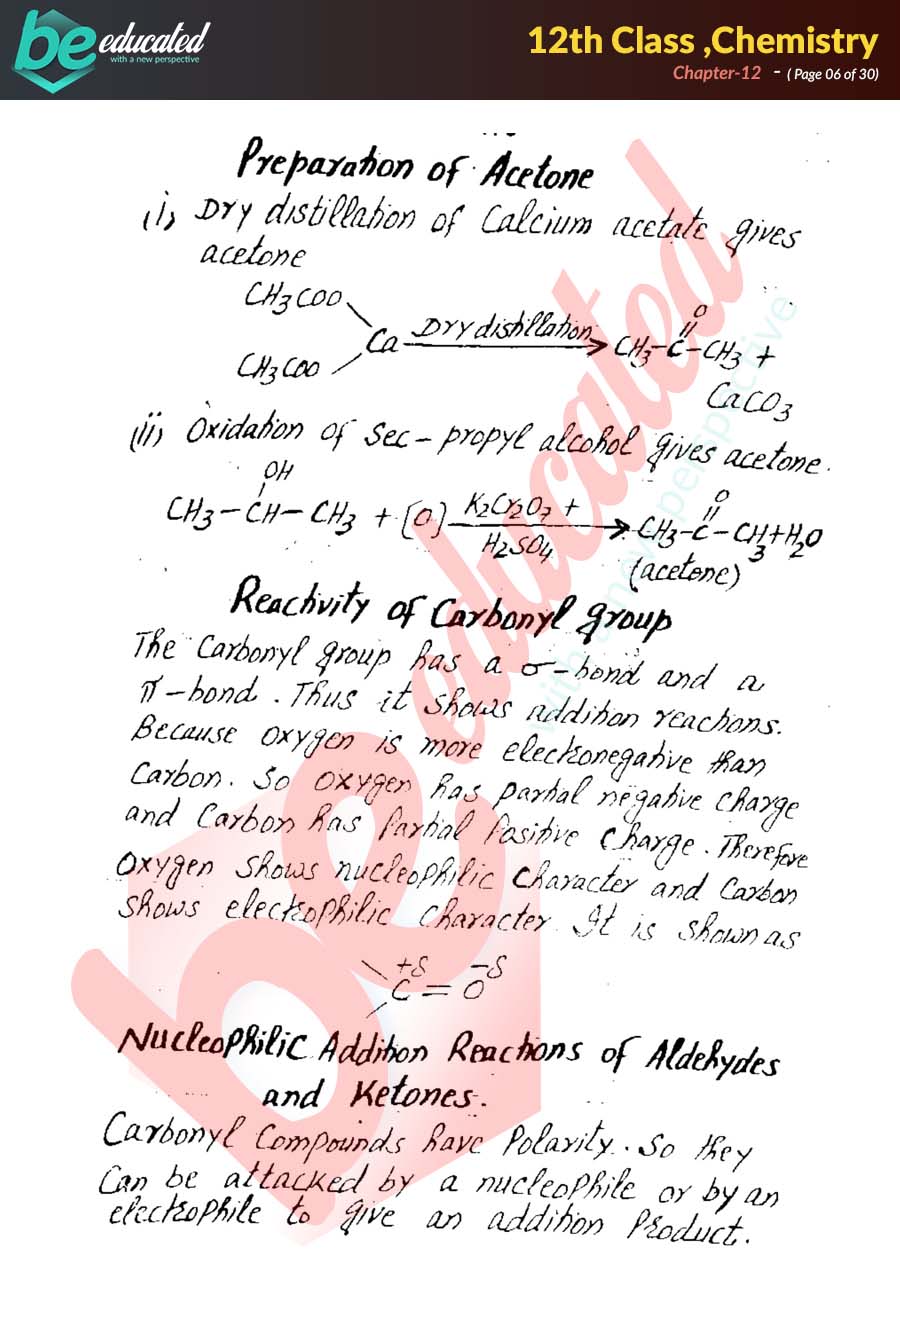 be educated
with a new perspective
12th Class ,Chemistry
Chapter-12 - ( Page 06 of 30)
Preparation of Acetone
(i) Dry distillation of Calcium acetate gives
acetone
CH3COO
Ca Dry distillation CH3-C-CH3 +
O
CH3COO
CaCO3
(ii) Oxidation of Sec-propyl alcohol gives acetone.
OH
CH3-CH-CH3 + [O] K2Cr2O7 + CH3-C-CH3+H2O
O
H2SO4
(acetone)
Reactivity of Carbonyl group
The Carbonyl group has a σ-bond and a
π-bond. Thus it shows addition reactions.
Because oxygen is more electronegative than
Carbon. So oxygen has partial negative charge
and Carbon has Partial Positive Charge. Therefore
Oxygen shows nucleophilic character and Carbon
shows electrophilic character. It is shown as
+δ -δ
C=O
Nucleophilic Addition Reactions of Aldehydes
and Ketones.
Carbonyl Compounds have Polarity. So they
Can be attacked by a nucleophile or by an
electrophile to give an addition Product.
be educated
with a new perspective